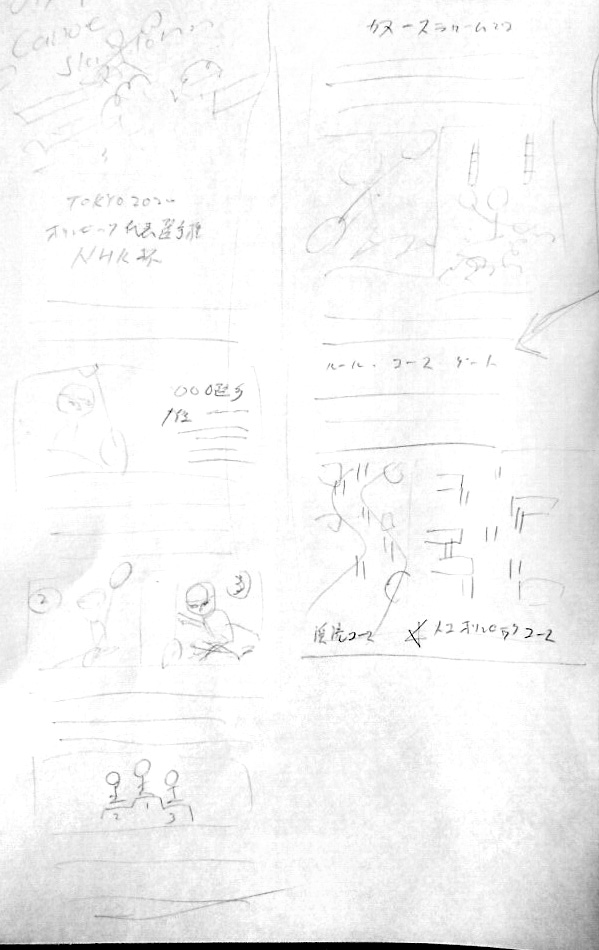 Canoe
Sla
TOKYO 2020
オリンピック代表選手権
NHK杯
〇〇〇選手
2
3
2 1 3
カヌースラロームとは
ルール・コース・ゲート
渓流コース
人工オリンピックコース